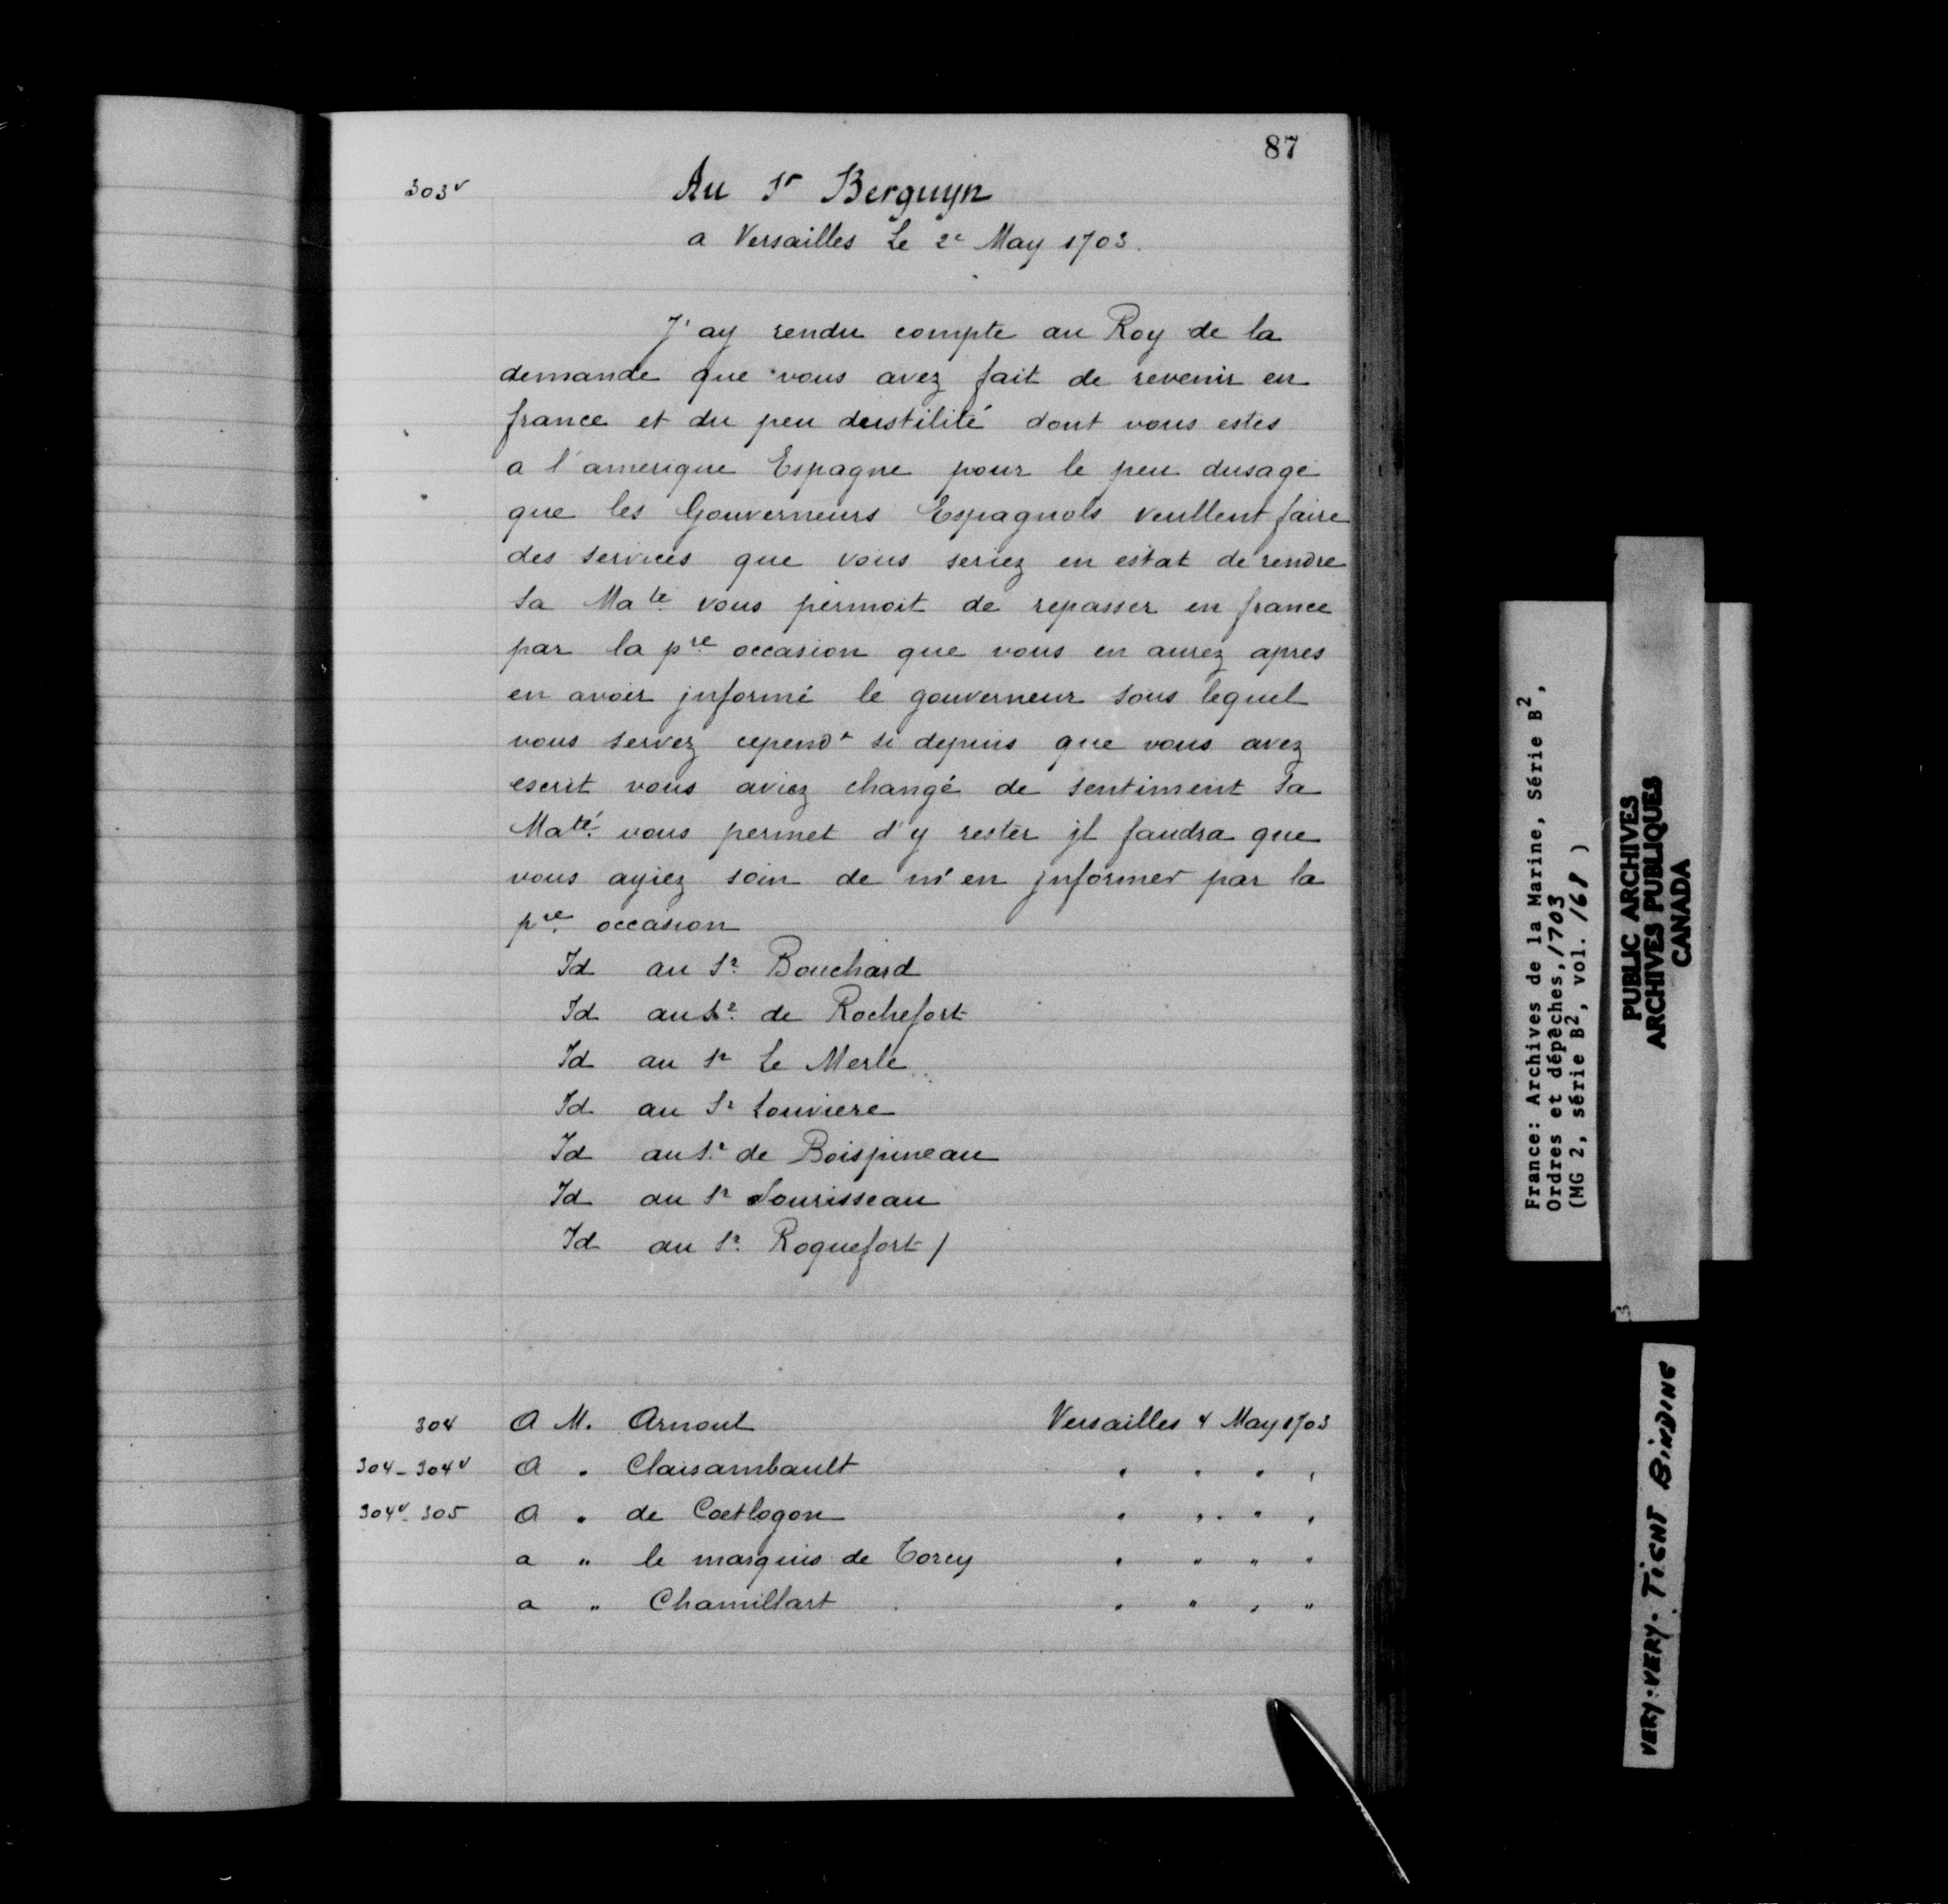 87
303v
Au Sr Berguyn
a Versailles Le 2e May 1703.
J'ay rendu compte au Roy de la
demande que vous avez fait de revenir en
france et du peu dustilité dont vous estes
a l'amerique Espagne pour le peu dusage
que les Gouverneurs Espagnols veullent faire
des services que vous seriez en estat de rendre
Sa Mate vous permoit de repasser en france
par la pre occasion que vous en aurez apres
en avoir jnformé le gouverneur sous lequel
vous servez cependt si depuis que vous avez
escrit vous aviez changé de sentiment Sa
Maté vous permet d'y rester jl faudra que
vous ayiez soin de m'en jnformer par la
pre occasion
Id au Sr Bouchard
Id au Sr de Rochefort
Id au Sr Le Merle
Id au Sr Louviere
Id au Sr de Boispineau
Id au Sr Sourisseau
Id au Sr Roquefort /
304 A M. Arnoul Versailles 4 May 1703
304-304v A " Clairambault " " " "
304v-305 A " de Coetlogon " " " "
a " le marquis de Torcy " " " "
a " Chamillart " " " "
France: Archives de la Marine, Série B2,
Ordres et dépêches, 1703
(MG 2, série B2, vol. 168 )
PUBLIC ARCHIVES
ARCHIVES PUBLIQUES
CANADA
3
VERY-VERY-TIGHT BINDING